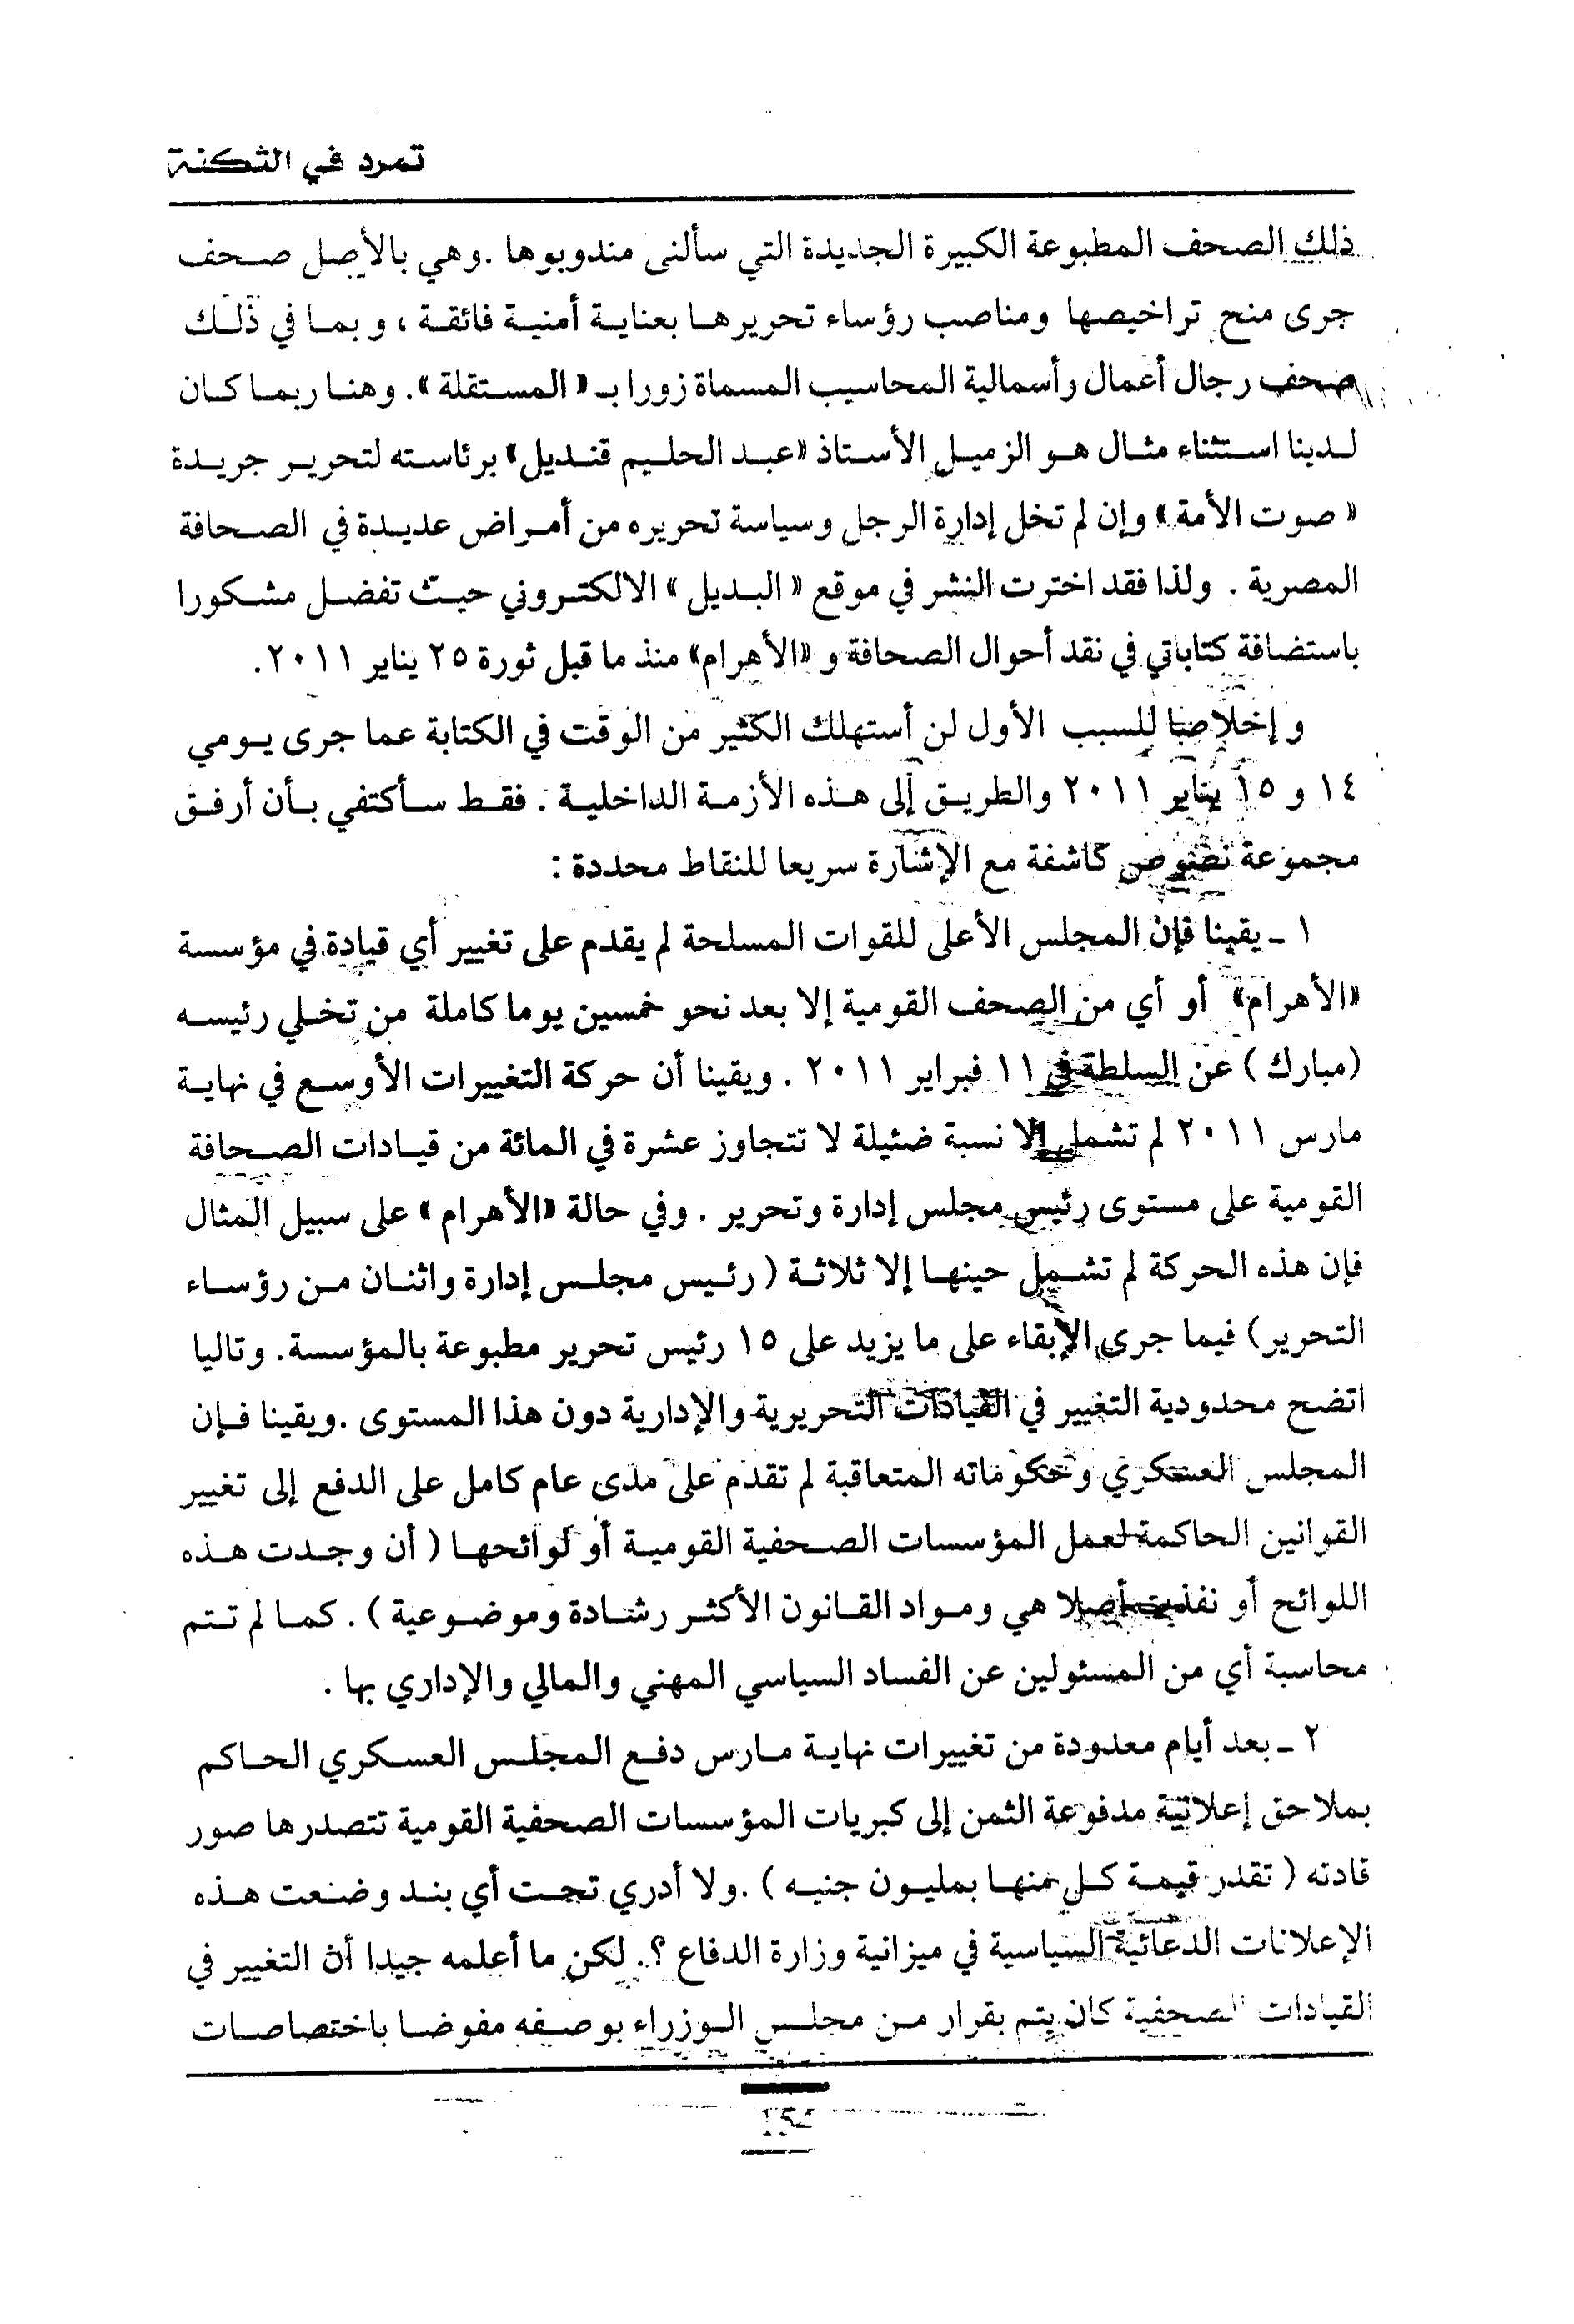 تمرد في الثكنة
ذلك الصحف المطبوعة الكبيرة الجديدة التي سألنى مندوبوها .وهي بالأصل صحف
جرى منح تراخيصها ومناصب رؤساء تحريرها بعناية أمنية فائقة ، وبما في ذلك
صحف رجال أعمال رأسمالية المحاسيب المسماة زورا بـ « المستقلة ». وهنا ربما كان
لدينا استثناء مثال هو الزميل الأستاذ «عبد الحليم قنديل» برئاسته لتحرير جريدة
« صوت الأمة » وإن لم تخل إدارة الرجل وسياسة تحريره من أمراض عديدة في الصحافة
المصرية . ولذا فقد اخترت النشر في موقع « البديل » الالكتروني حيث تفضل مشكورا
باستضافة كتاباتي في نقد أحوال الصحافة و «الأهرام» منذ ما قبل ثورة ٢٥ يناير ٢٠١١.
و إخلاصا للسبب الأول لن أستهلك الكثير من الوقت في الكتابة عما جرى يومي
١٤ و ١٥ يناير ٢٠١١ والطريق إلى هذه الأزمة الداخلية . فقط سأكتفي بأن أرفق
مجموعة نصوص كاشفة مع الإشارة سريعا للنقاط محددة :
١ ـ يقينا فإن المجلس الأعلى للقوات المسلحة لم يقدم على تغيير أي قيادة في مؤسسة
«الأهرام» أو أي من الصحف القومية إلا بعد نحو خمسين يوما كاملة من تخلي رئيسه
(مبارك ) عن السلطة في ١١ فبراير ٢٠١١ . ويقينا أن حركة التغييرات الأوسع في نهاية
مارس ٢٠١١ لم تشمل إلا نسبة ضئيلة لا تتجاوز عشرة في المائة من قيادات الصحافة
القومية على مستوى رئيس مجلس إدارة وتحرير . وفي حالة «الأهرام » على سبيل المثال
فإن هذه الحركة لم تشمل حينها إلا ثلاثة ( رئيس مجلس إدارة واثنان من رؤساء
التحرير) فيما جرى الإبقاء على ما يزيد على ١٥ رئيس تحرير مطبوعة بالمؤسسة. وتاليا
اتضح محدودية التغيير في القيادات التحريرية والإدارية دون هذا المستوى .ويقينا فإن
المجلس العسكري وحكوماته المتعاقبة لم تقدم على مدى عام كامل على الدفع إلى تغيير
القوانين الحاكمة لعمل المؤسسات الصحفية القومية أو لوائحها ( أن وجدت هذه
اللوائح أو نفذت أصلا هي ومواد القانون الأكثر رشادة وموضوعية ) . كما لم تتم
محاسبة أي من المسئولين عن الفساد السياسي المهني والمالي والإداري بها .
٢ ـ بعد أيام معدودة من تغييرات نهاية مارس دفع المجلس العسكري الحاكم
بملاحق إعلانية مدفوعة الثمن إلى كبريات المؤسسات الصحفية القومية تتصدرها صور
قادته ( تقدر قيمة كل منها بمليون جنيه ) .ولا أدري تحت أي بند وضعت هذه
الإعلانات الدعائية السياسية في ميزانية وزارة الدفاع ؟. لكن ما أعلمه جيدا أن التغيير في
القيادات الصحفية كان يتم بقرار من مجلس الوزراء بوصفه مفوضا باختصاصات